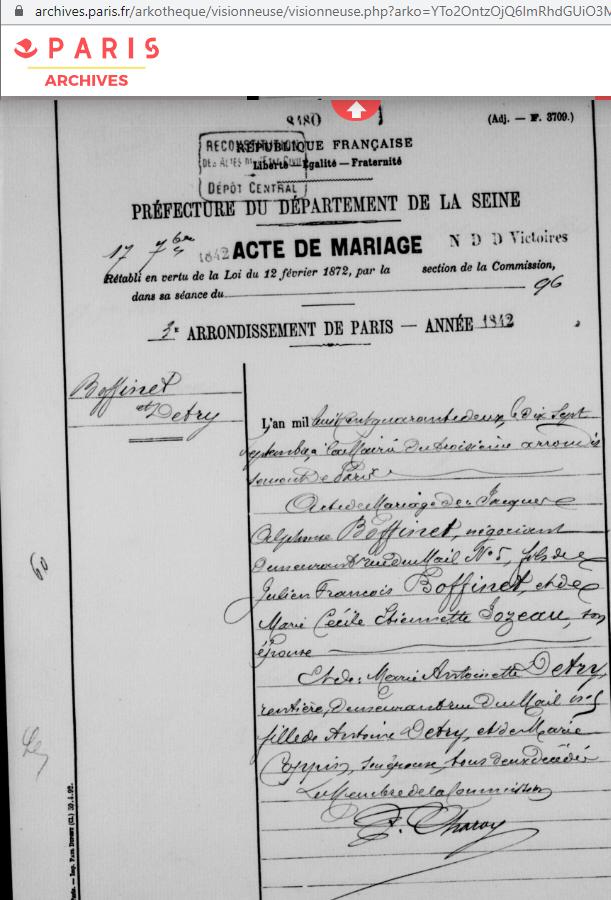 archives.paris.fr/arkotheque/visionneuse/visionneuse.php?arko=YTo2OntzOjQ6ImRhdGUiO3M
PARIS
ARCHIVES
8180
(Adj. — F. 3709.)
RÉPUBLIQUE FRANÇAISE
Liberté — Égalité — Fraternité
DÉPÔT CENTRAL
PRÉFECTURE DU DÉPARTEMENT DE LA SEINE
17 7bre 1842 ACTE DE MARIAGE N D D Victoires
Rétabli en vertu de la Loi du 12 février 1872, par la section de la Commission,
dans sa séance du 96
3e ARRONDISSEMENT DE PARIS — ANNÉE 1842
Boffinet
et Detry
L'an mil huit cent quarante deux, le dix Sept
septembre, à la Mairie du troisième arrondis
sement de Paris
Acte de Mariage de : Jacques
Alphonse Boffinet, négociant
demeurant rue du Mail No 5, fils de
Julien François Boffinet, et de
Marie Cécile Etiennette Jozeau, son
épouse
Et de : Marie Antoinette Detry,
rentière, demeurant rue du Mail no 5
fille de Antoine Detry, et de Marie
Coppin, son épouse, tous deux décédés
Le Membre de la Commission
60